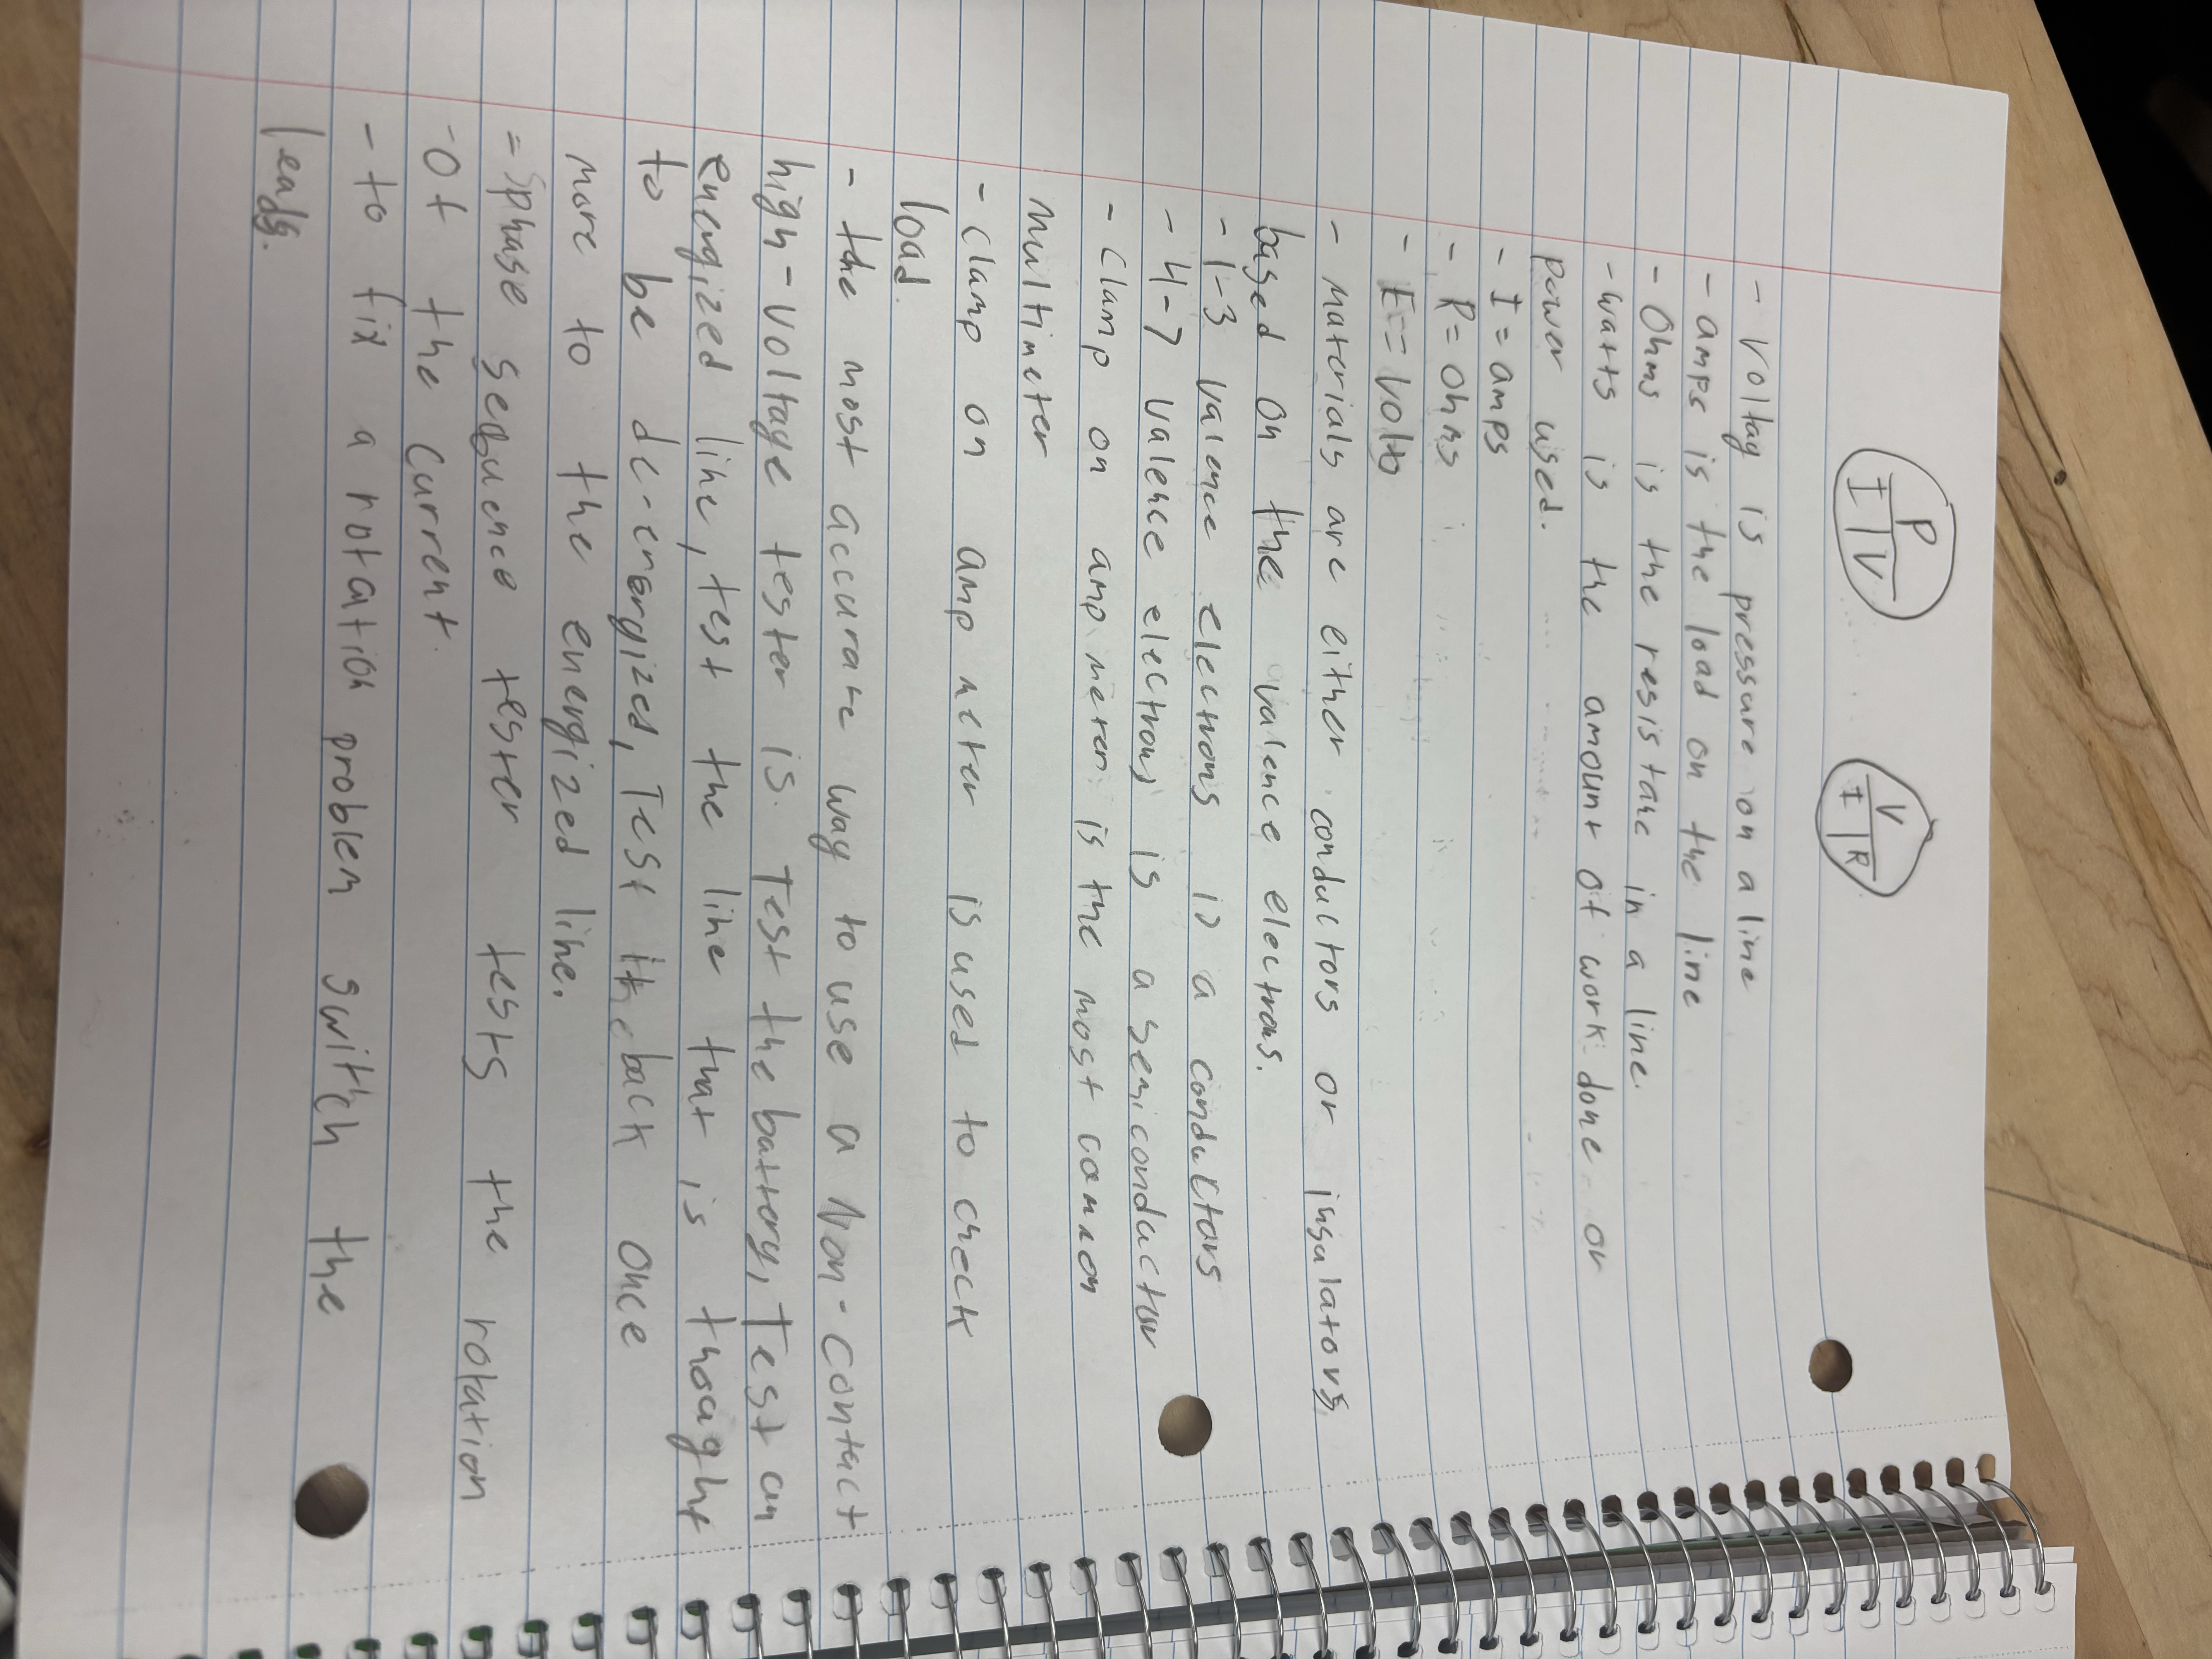 P
I V
V
I R
- Voltag is pressure on a line
- amps is the load on the line
- Ohms is the resistance in a line.
- watts is the amount of work done or
power used.
- I = amps
- R = Ohms
- E = Volts
- Materials are either conductors or insulators
based on the valence electrons.
- 1-3 valence electrons is a conductors
- 4-7 valence electrons is a semiconductor
- Clamp on amp meter is the most common
multimeter
- Clamp on amp meter is used to check
load.
- the most accurate way to use a Non-contact
high-voltage tester is. Test the battery, Test an
energized line, test the line that is thoaght
to be de-energized, Test it back once
more to the energized line.
= phase sequence tester tests the rotation
- Of the current.
- to fix a rotation problem switch the
leads.